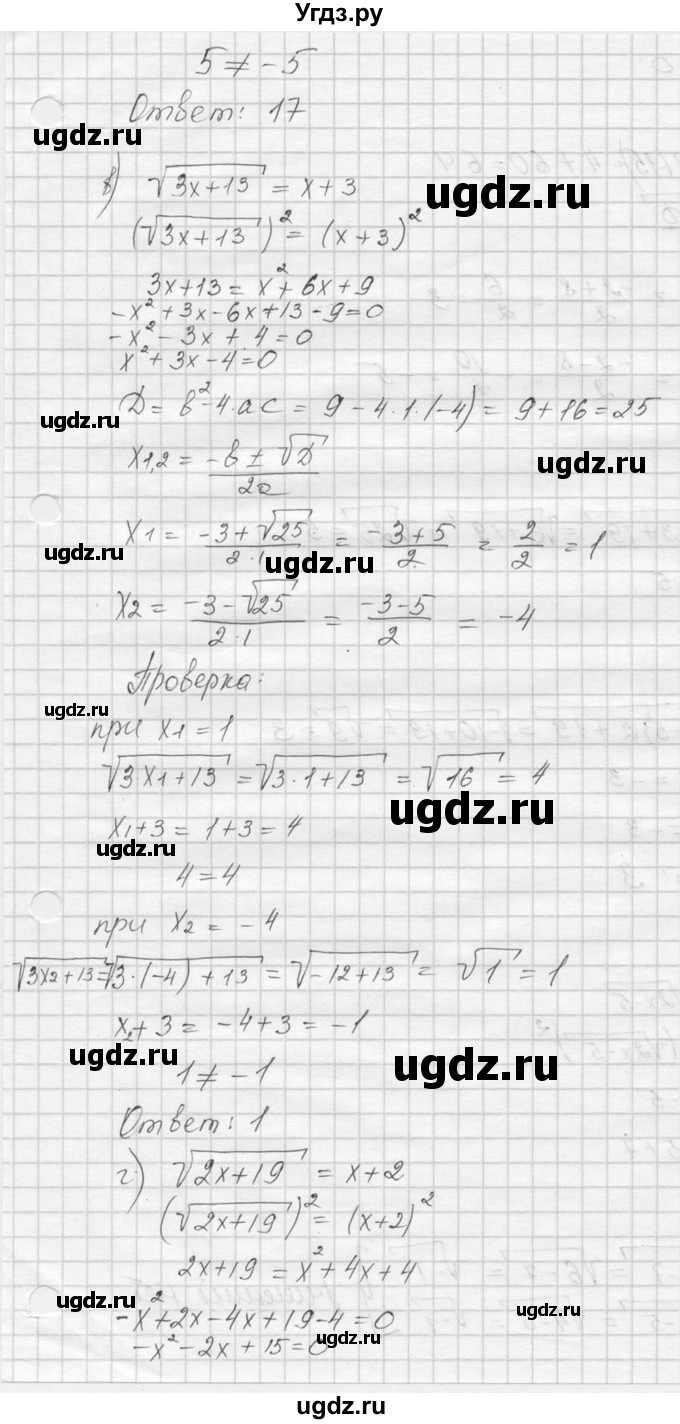 Угдз.ру
5 ≠ -5
Ответ: 17
ugdz.ru
в) √(3x+13) = x+3
ugdz.ru
(√(3x+13))² = (x+3)²
3x+13 = x²+6x+9
-x²+3x-6x+13-9=0
-x²-3x+4=0
x²+3x-4=0
D = в²-4·ac = 9-4·1·(-4) = 9+16=25
ugdz.ru
x1,2 = (-в ± √D)/2a
ugdz.ru
x1 = (-3+√25)/(2·1) = (-3+5)/2 = 2/2 = 1
ugdz.ru
ugdz.ru
x2 = (-3-√25)/(2·1) = (-3-5)/2 = -4
Проверка:
ugdz.ru
при x1 = 1
√(3x1+13) = √(3·1+13) = √16 = 4
ugdz.ru
x1+3 = 1+3 = 4
ugdz.ru
4 = 4
при x2 = -4
√(3x2+13) = √(3·(-4)+13) = √(-12+13) = √1 = 1
x2+3 = -4+3 = -1
ugdz.ru
ugdz.ru
1 ≠ -1
Ответ: 1
г) √(2x+19) = x+2
(√(2x+19))² = (x+2)²
2x+19 = x²+4x+4
ugdz.ru
ugdz.ru
-x²+2x-4x+19-4=0
ugdz.ru
-x²-2x+15=0
ugdz.ru